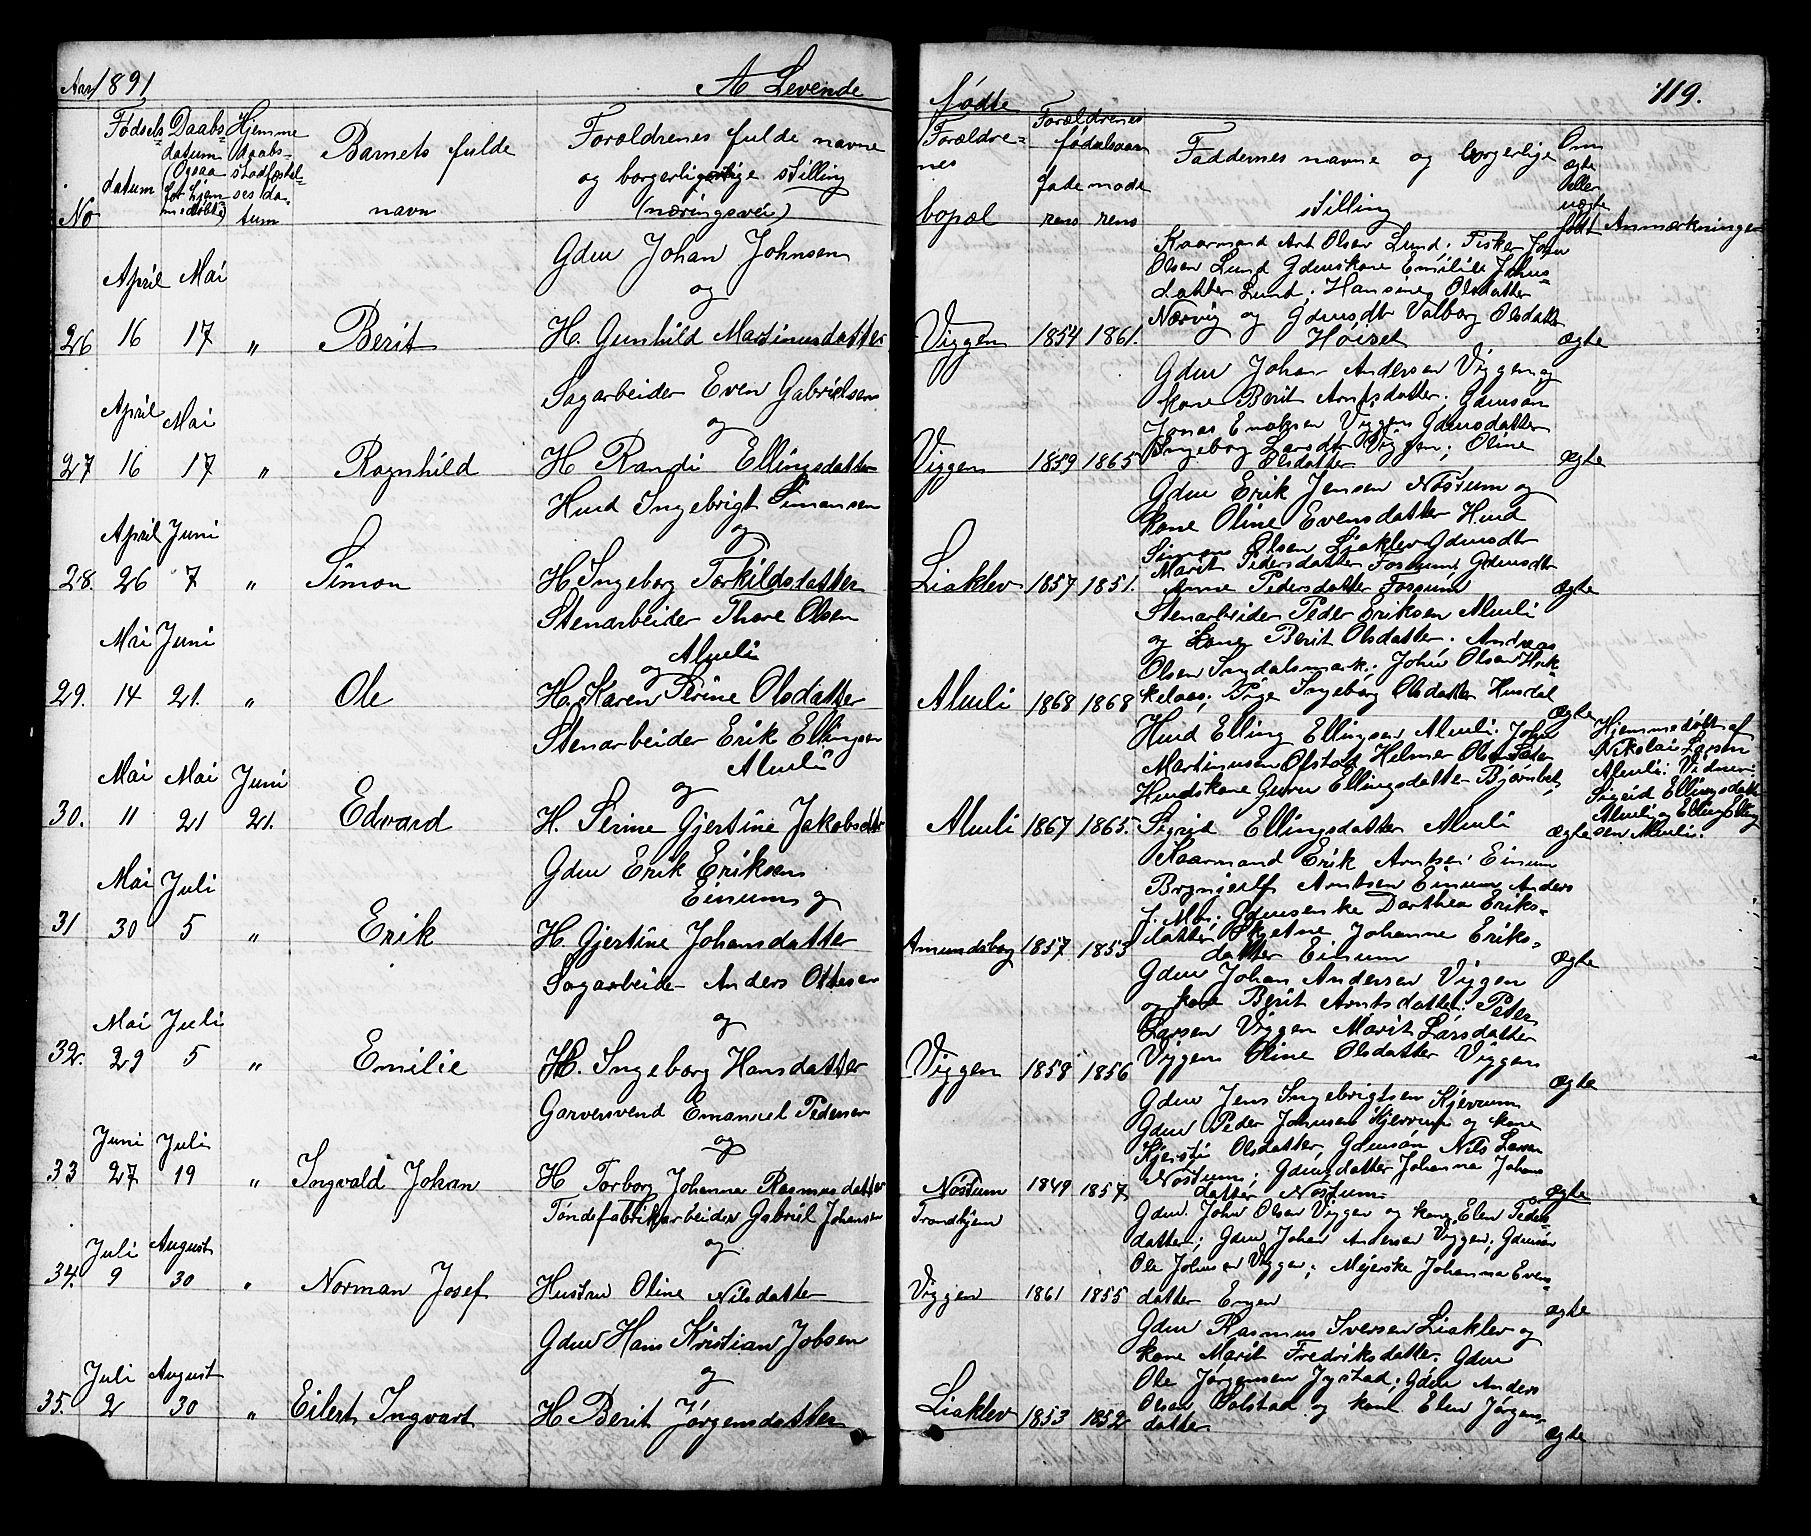 Aar 1891 A Levende
fødte 119.
No
Fødsels datum
Daabs datum (Ogsaa for hjemmedøbte)
Hjemme daabs stadfæstelses datum
Barnets fulde navn
Forældrenes fulde navne
og borgerlige stilling
(næringsvei)
Forældrenes bopæl
Forældrenes fødselsaar
faderens moderens
Faddernes navne og borgerlige
stilling
Om ægte eller uægte født
Anmærkninger
Gdm Johan Johnsen
April Mai
og
26 16 17 " Berit H. Gunhild Martinusdatter
Viggen 1854 1861.
Kaarmand Arnt Olsen Lund; Fisker John
Olsen Lund Gdmskone Emilie Johns-
datter Lund; Hansine Olsdatter
Nærvig og Gdmsdt Valborg Olsdatt
Høiset ægte
Sagarbeider Even Gabrielsen
April Mai
og
27 16 17 " Ragnhild H Randi Ellingsdatter
Viggen 1859 1865
Gdm Johan Andersen Viggen og
kone Berit Arntsdatter. Gdmsøn
Jonas Viggen Gdmsdatter
Ingeborg Larsdt Viggen; Oline
Olsdatter ægte
Husmd Ingebrigt Simonsen
April Juni
og
28. 26 7 " Simon H. Ingeborg Torkildsdatter
Liaklev 1857 1851.
Gdm Erik Jensen Nøstum og
kone Oline Evensdatter Husmd
Simon Olsen Liaklev Gdmsdt
Marit Pedersdatter Fossum, Gdmsdt
Anne Pedersdatter Fossum ægte
Stenarbeider Thore Olsen
Mai Juni
Almli
og
29. 14 21. " Ole H. Karen Perine Olsdatter
Almli 1868 1868
Stenarbeider Peder Eriksen Almli
og kone Berit Olsdatter. Andreas
Olsen Ingdalsmark; John Olsen
Pige Ingeborg Olsdatter Husdal
ægte
Stenarbeider Erik Ellingsen
Almli
Mai Mai Juni
og
30. 11 21 21. Edvard H. Serine Gjertine Jakobsdt
Almli 1867 1865.
Husmd Elling Ellingsen Almli. John
Martinusen Ofstad Helmer Olsen
Husmdskone Guru Ellingsdatter
Sigrid Ellingsdatter Almli ægte
Hjemmedøbt af
Nikolai Larsen
Almli. Vidner:
Sigrid Ellingsdatter
Almli og Elling Elling
sen Almli.
Gdm Erik Eriksen
Einum og
Mai Juli
31 30 5 " Erik H. Gjertine Johansdatter
Amundsbog 1857 1853
Kaarmand Erik Arntsen Einum
Brynjulf Arntsen Einum Anders
J. Moe. Gdmsenke Dorthea Eriks-
datter Skjetne Johanne Eriks-
datter Einum ægte
Sagarbeider Anders Ottesen
Mai Juli
og
32. 29 5 " Emilie H. Ingeborg Hansdatter
Viggen 1858 1856
Gdm Johan Andersen Viggen
og kone Berit Arntsdatter. Peder
Larsen Viggen Marit Larsdatter
Viggen Oline Olsdatter Viggen
ægte
Garversvend Emanuel Pedersen
Juni Juli
og
33 27 19 " Ingvald Johan H Torborg Johanna Rasmusdatter
Nøstum 1849 1857
Trondhjem
Gdm Jens Ingebrigtsen Kjerrum
Gdm Peder Johnsen Kjerrum og kone
Kjersti Olsdatter, Gdmsøn Nils Larsen
Nøstum; Gdmsdatter Johanna Johans
datter Nøstum ægte
Tøndefabrikarbeider Gabriel Johansen
Juli August
og
34. 9 30 " Norman Josef Hustru Oline Nilsdatter
Viggen 1861 1855
Gdm John Olsen Viggen og kone Elen Peders-
datter; Gdm Johan Andersen Viggen; Gdmsøn
Ole Johnsen Viggen; Mejerske Johanna Evens-
datter Engen ægte
Gdm Hans Kristian Jobsen
Juli August
og
35. 2 30 " Eilert Ingvart H Berit Jørgensdatter
Liaklev 1853 1852
Gdm Rasmus Iversen Liaklev og
kone Marit Fredriksdatter. Gdm
Ole Jørgensen Jystad; Gdm Anders
Olsen Solstad og kone Elen Jørgens-
datter. ægte